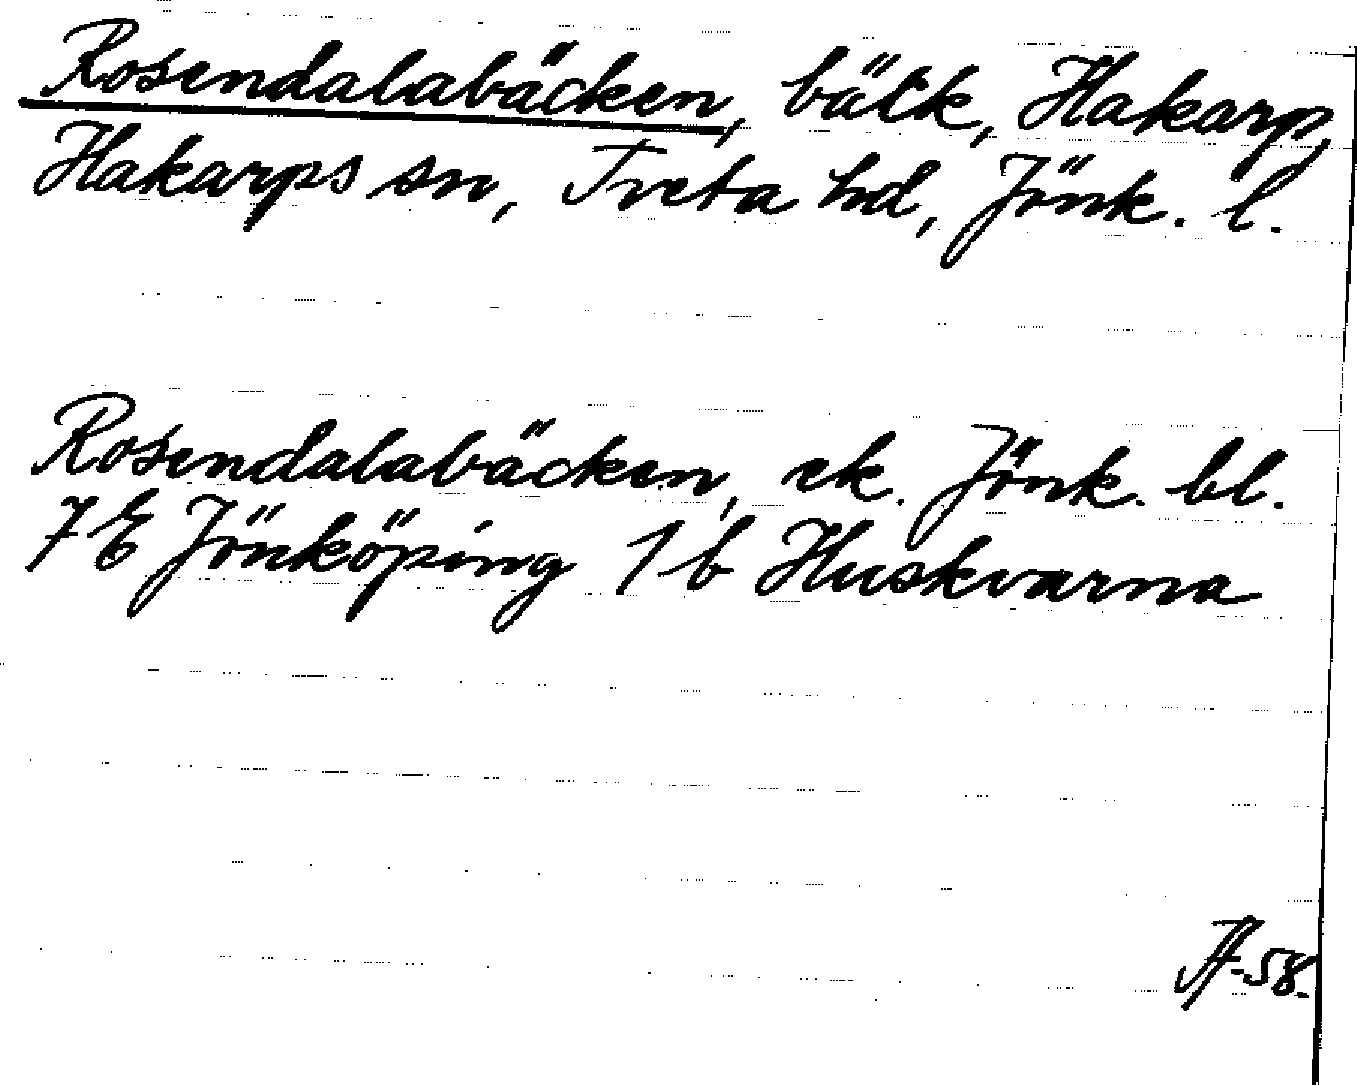 Rosendalabäcken, bäck, Hakarp,
Hakarps sn, Tveta hd, Jönk. l.
Rosendalabäcken, ek. Jönk. bl.
7E Jönköping 1b Huskvarna
-58.